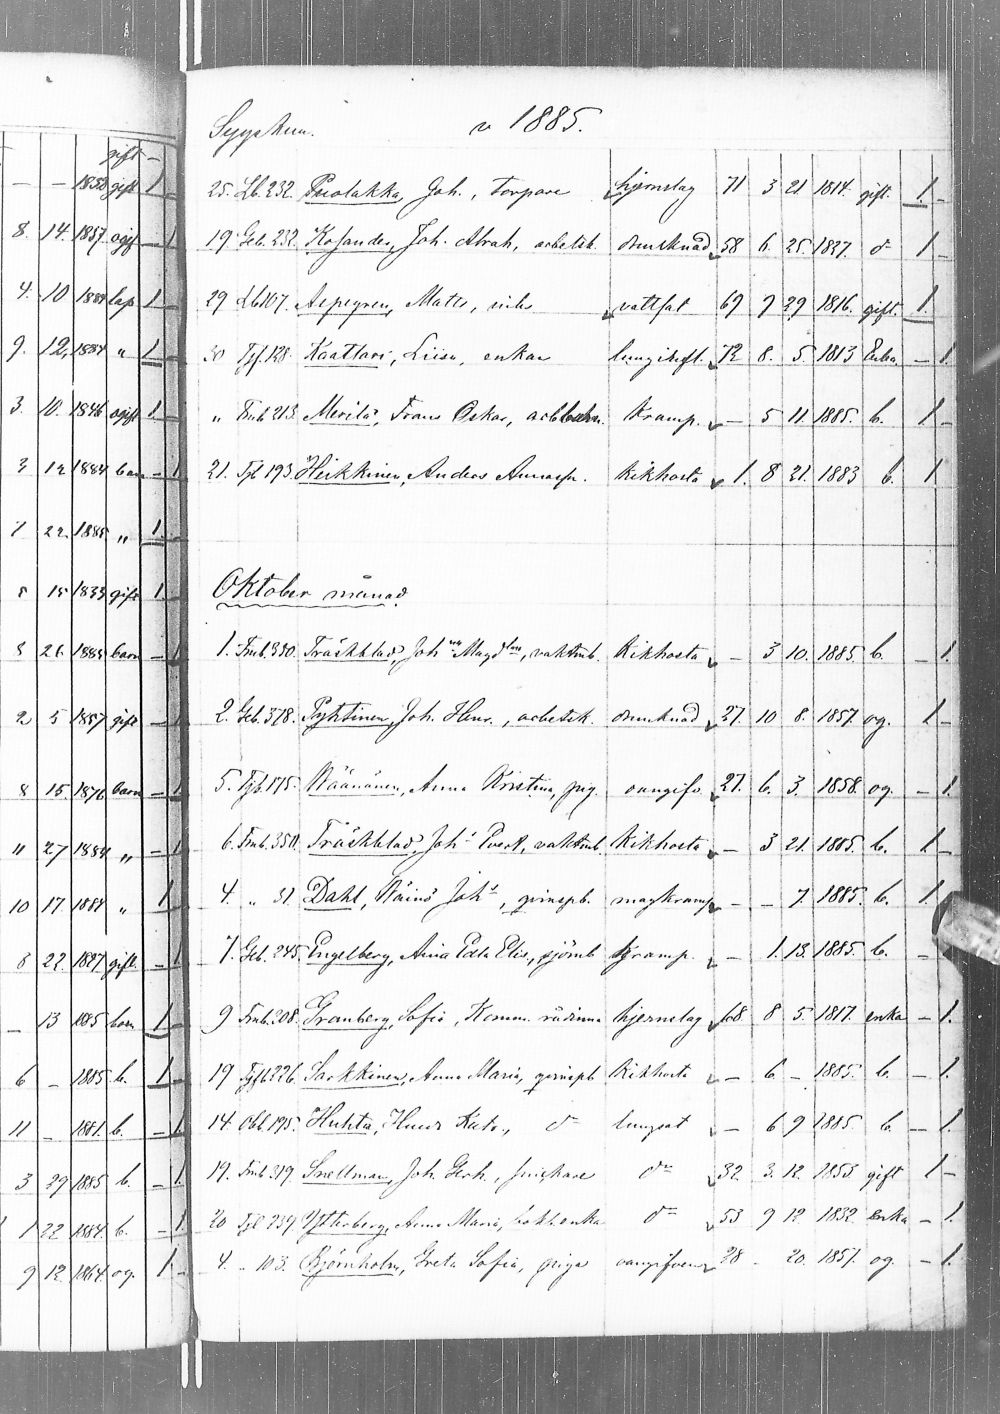 gift –
– – 1858 gift 1 –
8. 14. 1857 ogift – 1
4. 10 1884 1 –
9. 12. 1884 " 1 –
3. 10. 1846 ogift 1 –
3 12 1884 barn – 1
7 22. 1885 „ 1.
8 15 1833 gift 1 –
8 26. 1885 barn – 1
2 5 1857 gift – 1
8 15. 1876 barn – 1
" 27 1884 „ – 1
10 17. 1884 " 1
8 22. 1827 gift – 1
– 13 1885 barn 1 –
6 – 1885 b. 1 –
11 – 1881. b. – 1.
3 29 1885 b. – 1
1 22 1884. b. – 1.
9 12. 1864. og. 1. –
Syyskuu. v 1885.
25. Lb. 232. Puolakka, Joh., Torpare hjernslag 71 3 21 1814. gift. 1 –
19. Geb. 232. Kosander, Joh. Abrah, arbetsk. drunknad 58 6. 25. 1827. d:o 1 –
29 Lb 107. Aspegren, Matts, vattsot 69 9 29 1816. gift. 1.
30 Tjf. 128. Kaattari, Liisa, enkan lunginfl. 72 8. 5. 1813 Enka – 1.
„ Fmb 213. Merilä, Frans Oskar, Kramp. – 5 11. 1885. b. 1 –
21. Tjl 193. Heikkinen, Anders Kikhosta 1. 8 21. 1883 b. 1
Oktober månad.
1. Fmb. 350. Träskblad, Joh:na Magd:lena, vaktmb. Kikhosta – 3 10. 1885. b. – 1.
2. Geb. 378. Pyhtinen, Joh. Henr., arbetsk. drunknad 27. 10 8. 1857. og. 1 –
5. Tjb. 175. Wäänänen, Anna Kristina, pig. 27. 6. 3. 1858. og. – 1.
6. Fmb. 350. Träskblad, Joh. Evert, vaktmb. Kikhosta – 3 21. 1885. b. 1 –
4. „ 51. Dahl, Wäinö Joh:s, magkramp – – 7. 1885. b. 1.
7. Geb. 245. Engelberg, Aina Edla Elis., sjömb Kramp. – 1. 13. 1885. b. –
9 Fmb. 208. Granberg, Sofia, Komm. rådinna hjernslag 68 8 5. 1817. enka – 1.
19 Tjfl 226. Sarkkinen, Anna Maria, Kikhosta – 6 – 1885. b. – 1.
14. Obl. 195. Huhta, d:o lungsot – 6 9 1885. b. – 1.
19. Fmb. 319. Snellman, Joh. Gerh., d:o 32. 3. 12. 1853. gift 1 –
20 Tjl 239. Ytterberg, Anna Maria, d:o 53 9 12 1832. enka – 1.
4. – 103. Björnholm, Greta Sofia, piga 28 – 20. 1857. og. – 1.